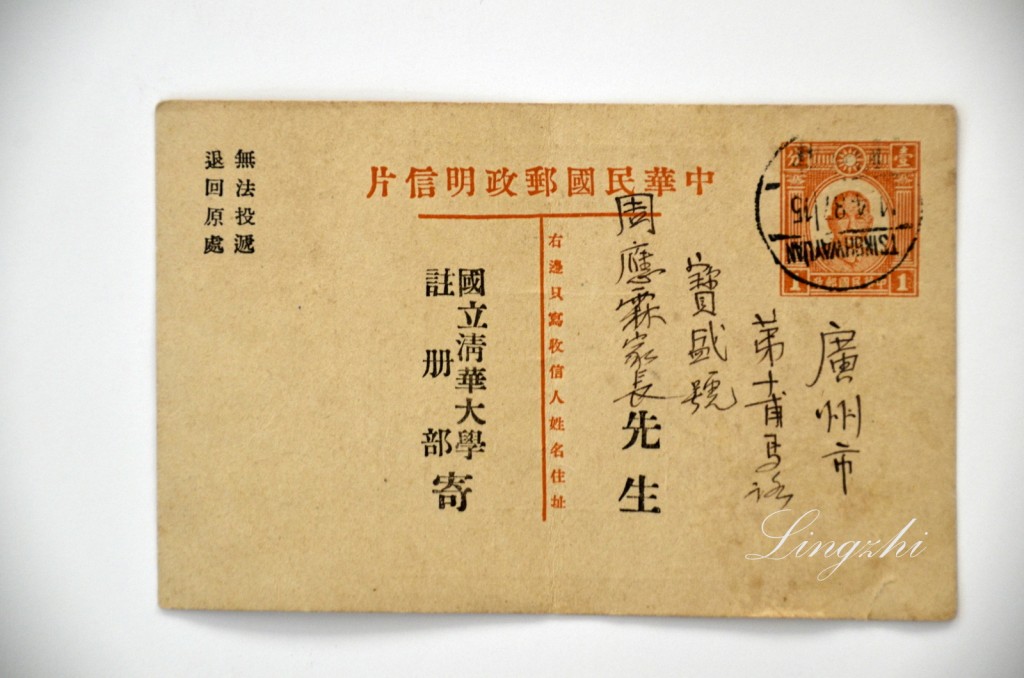 中華民國郵政明信片
壹分
1 1
TSINGHWAYUAN
廣州市
第十甫馬路
寶盛號
周應霖家長先生
右邊只寫收信人姓名住址
國立清華大學
註册部寄
無法投遞
退回原處
Lingzhi